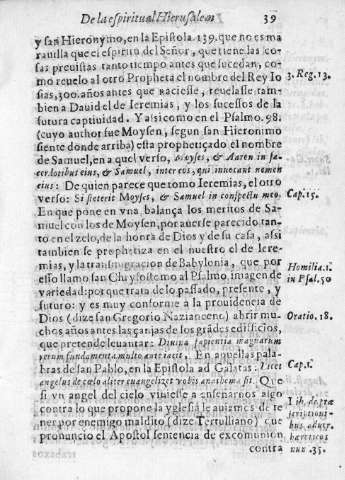 De la espiritual Hierusalem 39
y san Hieronymo, en la Epistola. 139. que no es ma
rauilla que el espiritu del Señor, que tiene las co
sas preuistas tanto tiempo antes que sucedan, co
mo reuelo al otro Propheta el nombre del Rey Io
sias, 300. años antes que naciesse, reuelasse tam
bien a Dauid el de Ieremias, y los sucessos de la
futura captiuidad. Y assi como en el Psalmo. 98.
(cuyo author fue Moysen, segun san Hieronimo
siente donde arriba) esta prophetiçado el nombre
de Samuel, en a quel verso, Moyses, & Aaron in sa-
cerdotibus eius, & Samuel, inter eos, qui innocant nomen
eius: De quien parece que tomo Ieremias, el otro
verso: Si steterit Moyses, & Samuel in conspectu meo.
En que pone en vna balança los meritos de Sa-
muel con los de Moysen, por auerse parecido tan-
to en el zelo, de la honra de Dios y de su casa, assi
tambien se prophetiza en el nuestro el de Iere-
mias, y la transmigracion de Babylonia, que por
esso llamo san Chrysostemo al Psalmo, imagen de
variedad: por que trata de lo passado, presente, y
futuro: y es muy conforme a la prouidencia de
Dios (dize san Gregorio Nazianceno) abrir mu-
chos años antes las çanjas de los grãdes edificios,
que pretende leuantar: Diuina sapientia magnarum
rerum fundamenta multo ante iacit, En aquellas pala-
bras de san Pablo, en la Epistola ad Galatas. Licet
angelus de cœlo aliter euangelizet vobis anathema sit. Que
si vn angel del cielo viniesse a enseñarnos algo
contra lo que propone la yglesia le auiamos de te
ner por enemigo maldito (dize Tertulliano) que
pronuncio el Apostol sentencia de excomunion
contra
3. Reg. 13.
Cap. 15.
Homilia. 1.
in Psal. 50
Oratio. 18.
Cap. 1.
Lib. de præ
scriptioni-
bus, aduer.
hæreticos
nu. 35.